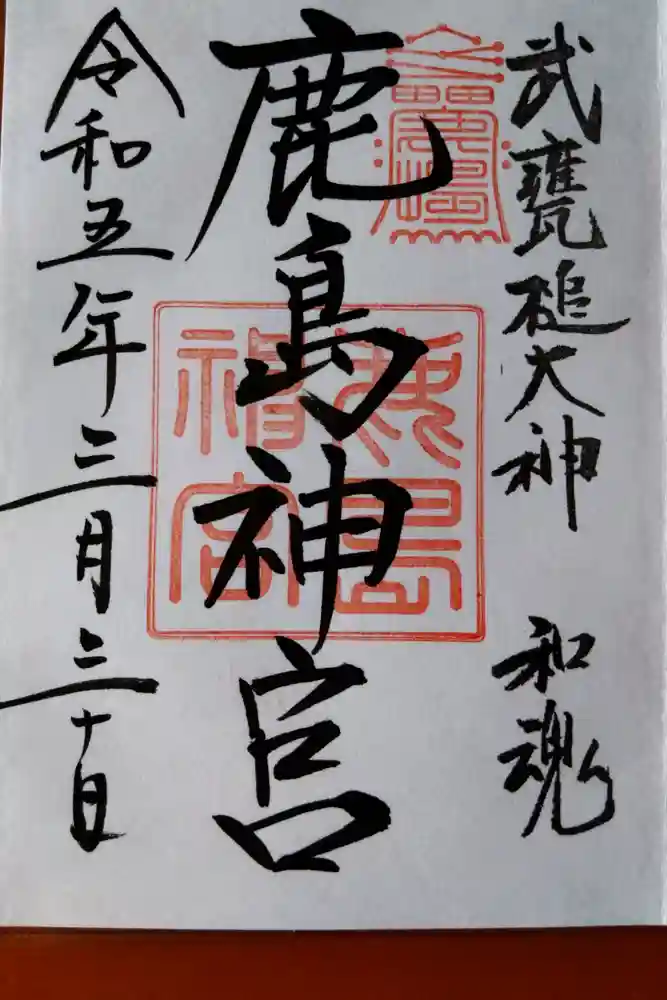 武甕槌大神 和魂
鹿島神宮
令和五年三月三十日
鹿島神宮